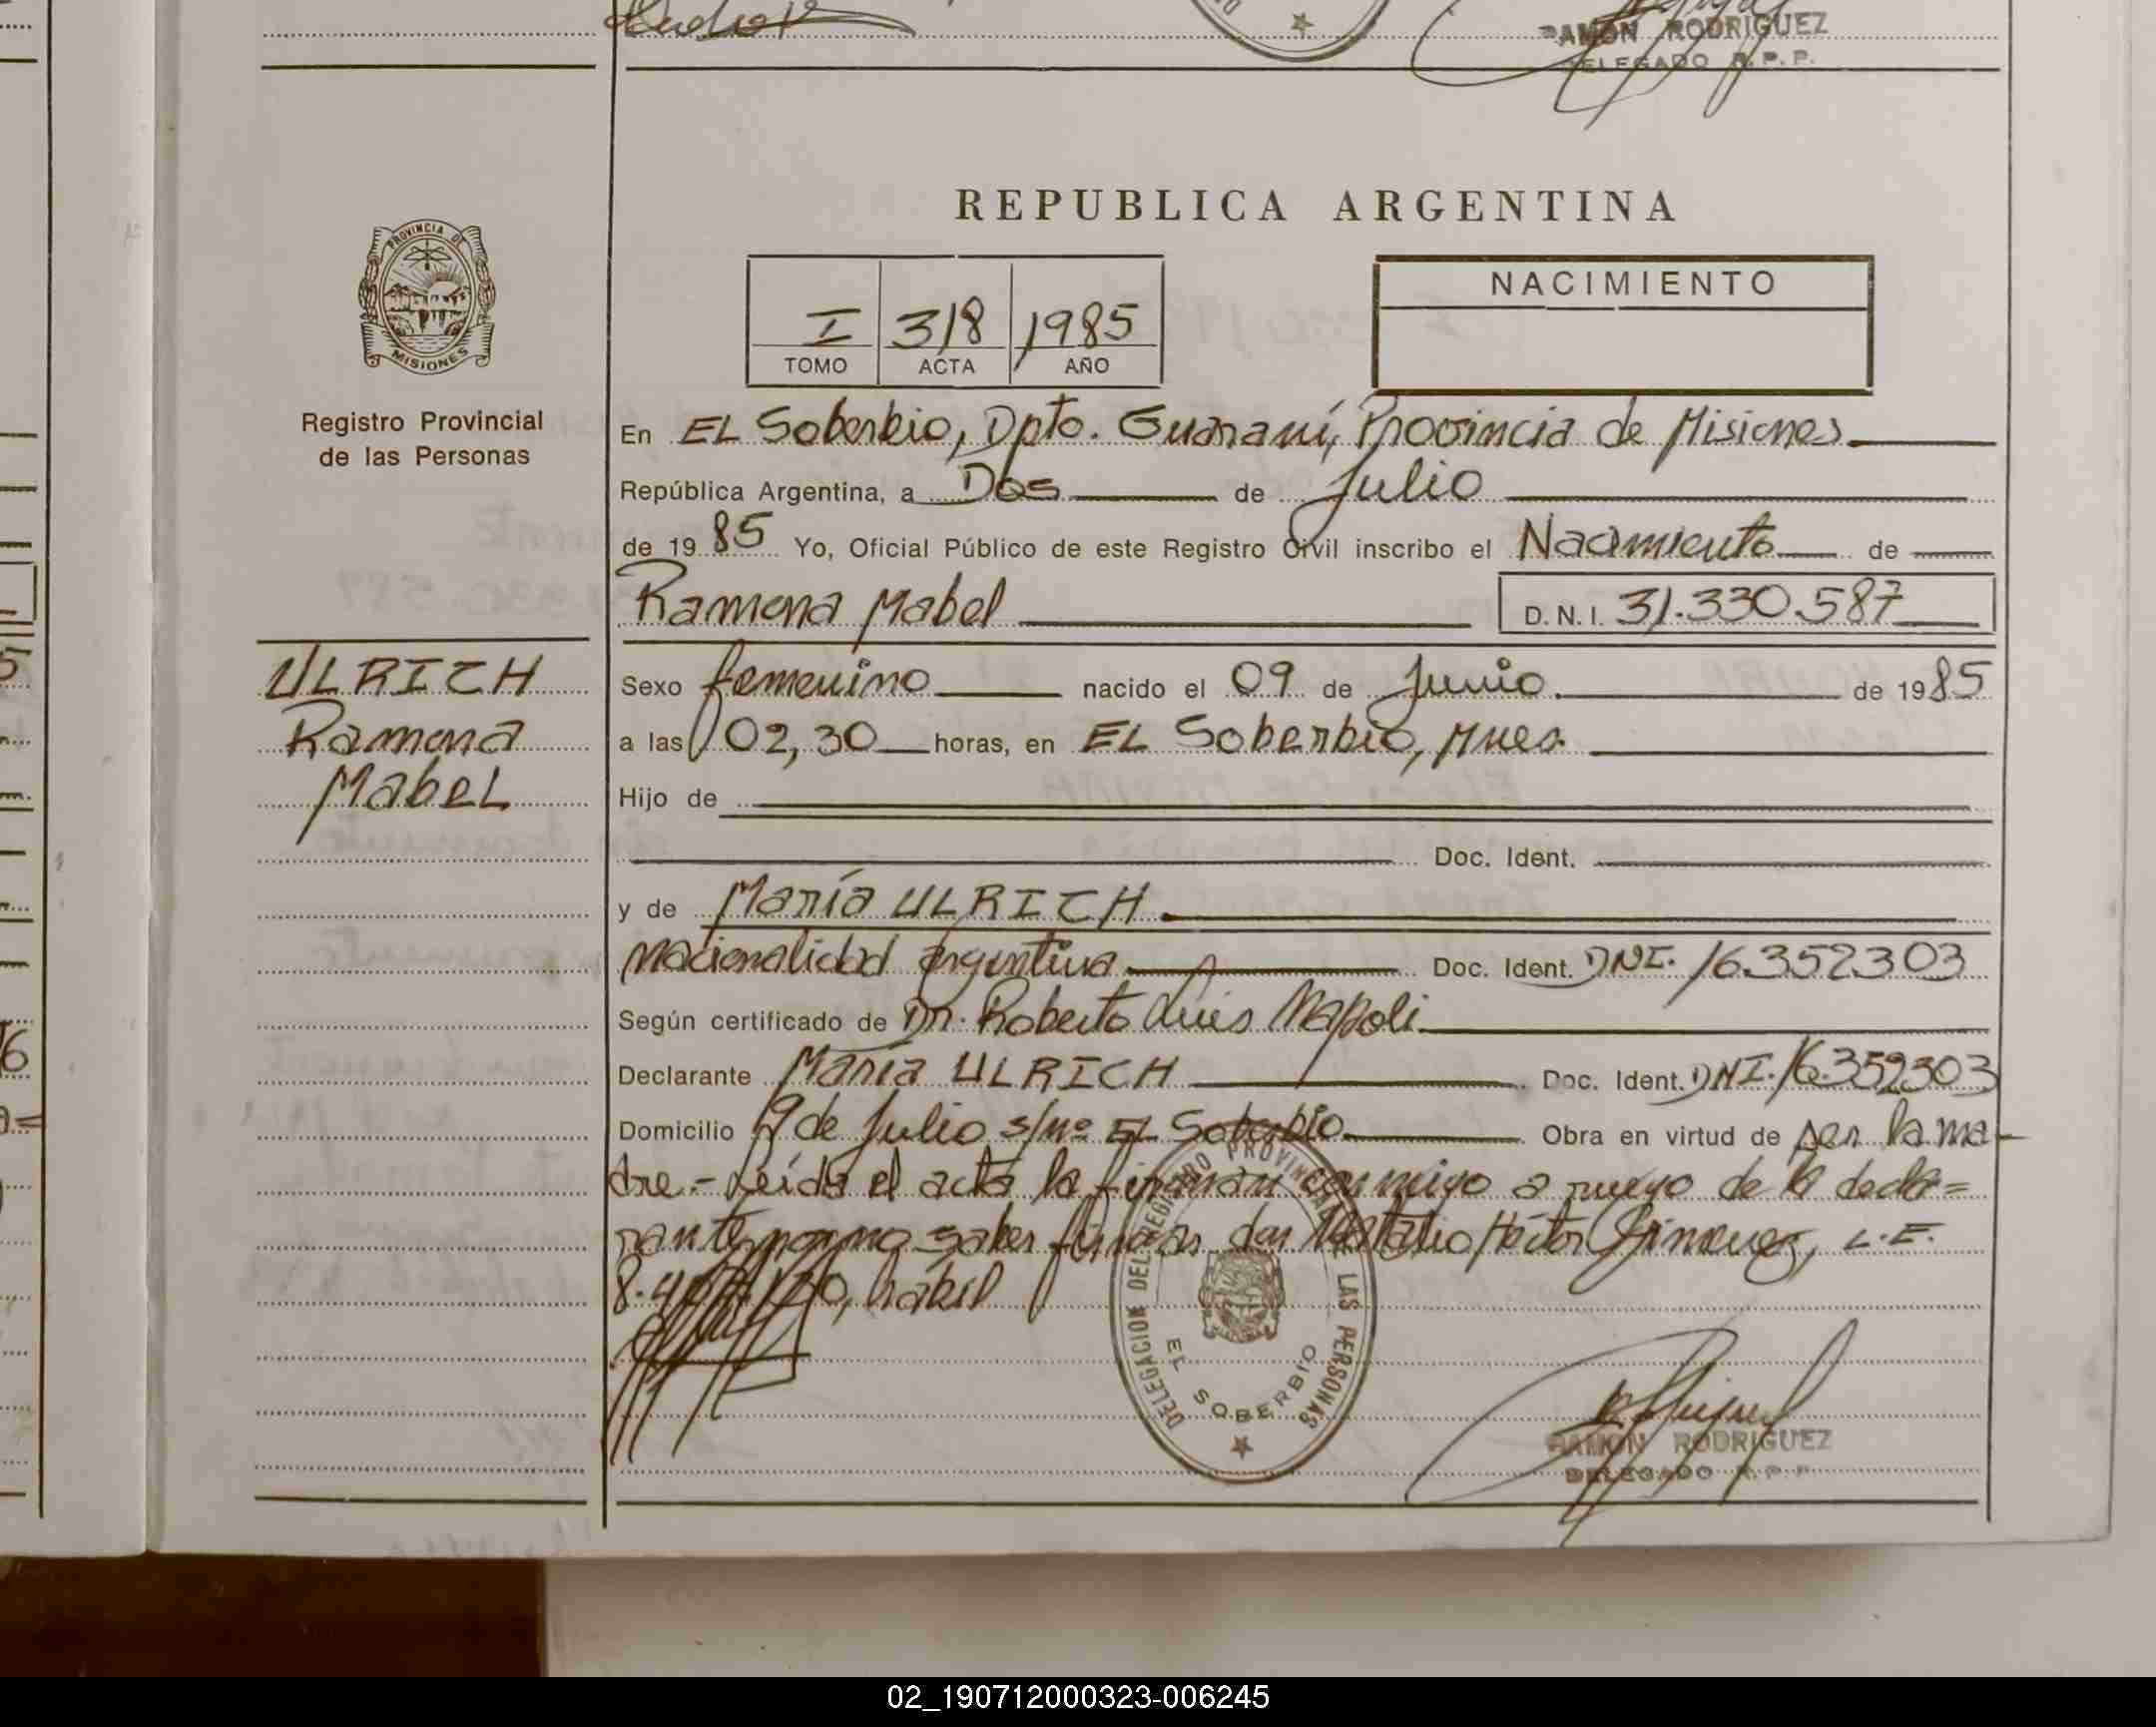 RAMON RODRIGUEZ
DELEGADO R.P.P.
REPUBLICA ARGENTINA
PROVINCIA DE
MISIONES
Registro Provincial
de las Personas
I 318 1985
TOMO ACTA AÑO
NACIMIENTO
En EL Soberbio, Dpto. Guaraní, Provincia de Misiones
República Argentina, a Dos de Julio
de 1985 Yo, Oficial Público de este Registro Civil inscribo el Nacimiento de
Ramona Mabel D.N.I. 31.330.587
ULRICH
Ramona
MabeL
Sexo femenino nacido el 09 de Junio. de 1985
a las 02,30 horas, en EL Soberbio, Mnes.
Hijo de
Doc. Ident.
y de María ULRICH
nacionalidad argentina Doc. Ident. DNI. 16.352303
Según certificado de Dr. Roberto Luis Napoli
Declarante María ULRICH Doc. Ident. DNI. 16.352303
Domicilio 9 de Julio s/nº EL Soberbio Obra en virtud de ser la ma-
dre.- Leída el acta la firman conmigo a ruego de la decla=
rante por no saber firmar don Natalio Héctor Gimenez, L.E.
hábil
DELEGACION DEL REGISTRO PROVINCIAL DE LAS PERSONAS
EL SOBERBIO
RAMON RODRIGUEZ
DELEGADO R.P.P.
02_190712000323-006245